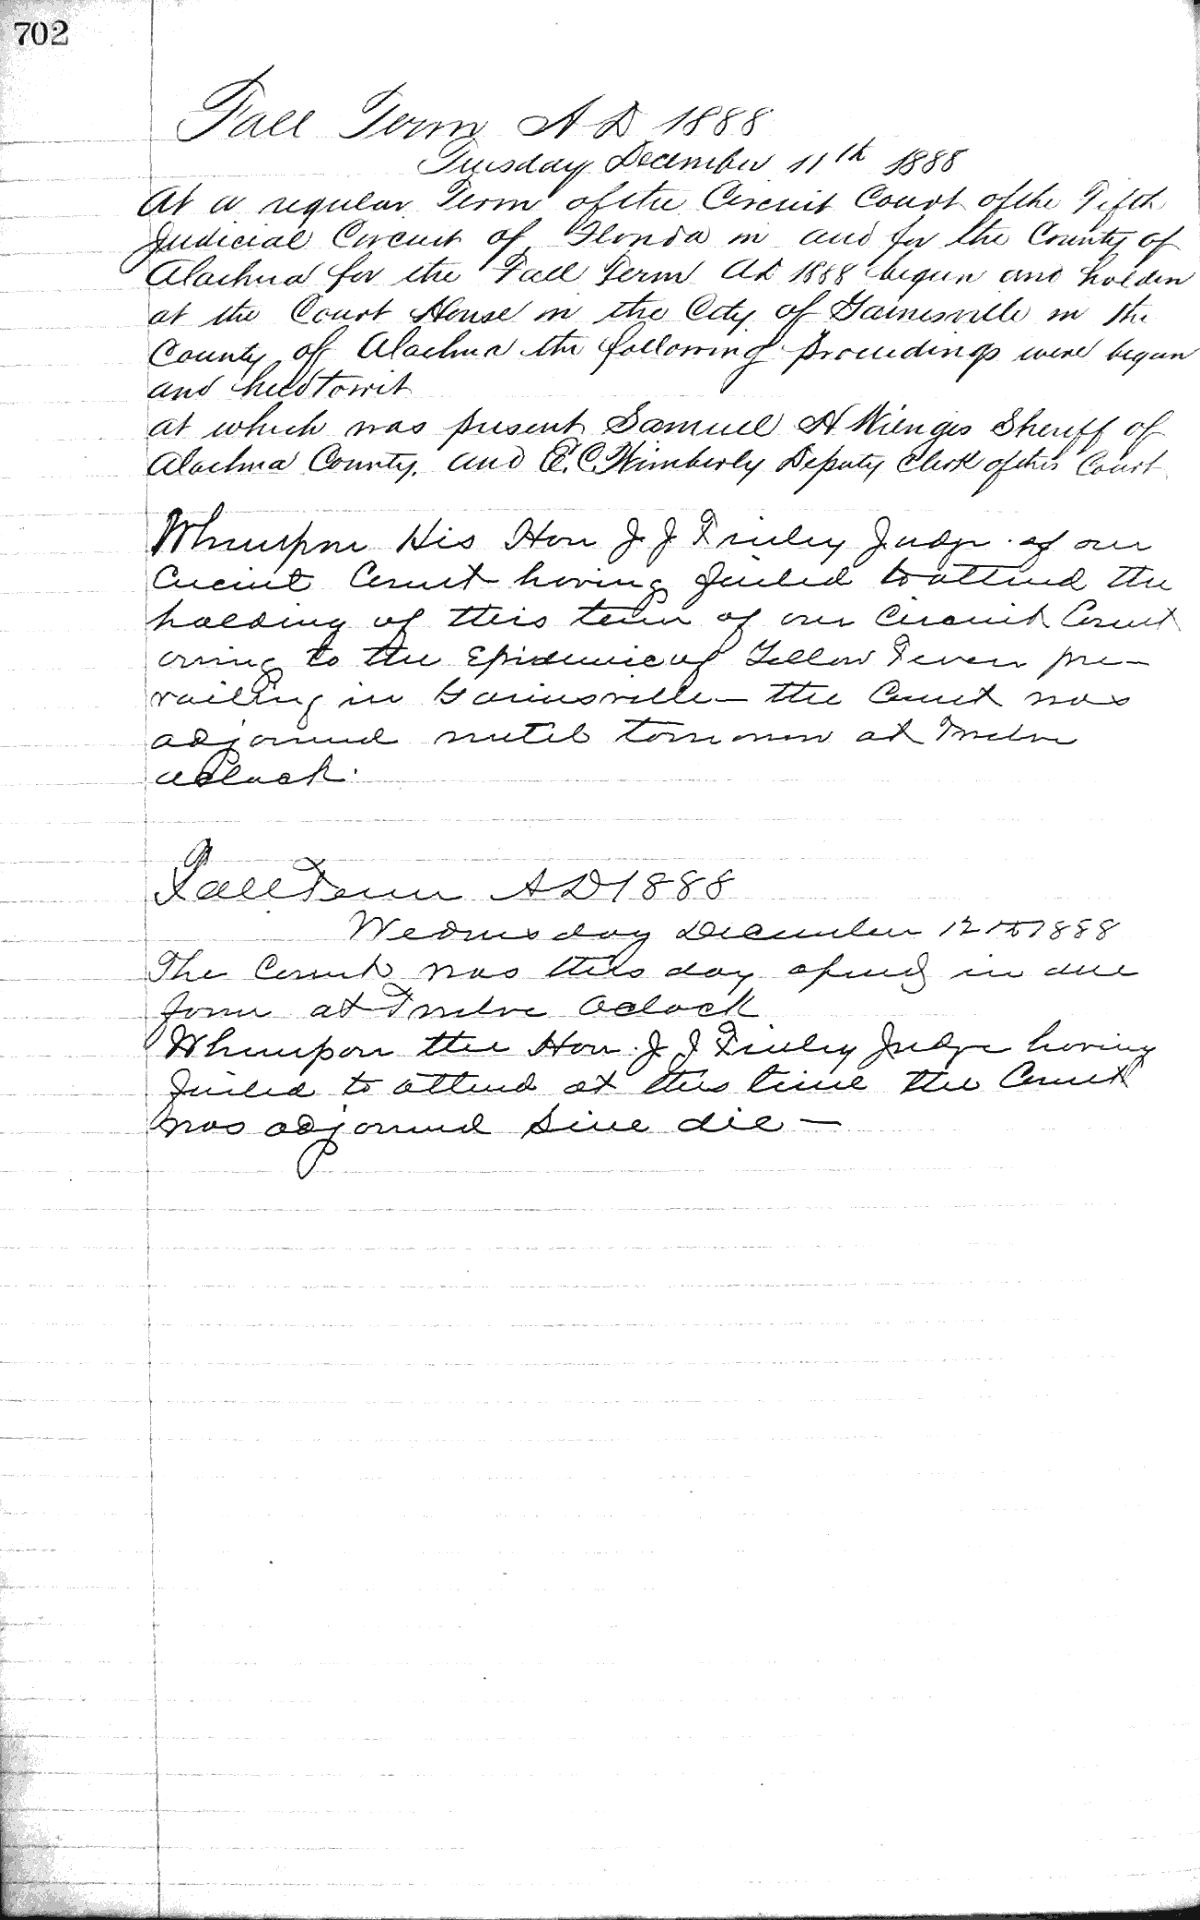 702
Fall Term A D 1888
Tuesday December 11th 1888
At a regular Term of the Circuit Court of the Fifth
Judicial Circuit of Florida in and for the County of
Alachua for the Fall Term AD 1888 begun and holden
at the Court House in the City of Gainesville in the
County of Alachua the following proceedings were began
and held towit
at which was present Samuel H Wienges Sheriff of
Alachua County, and E. C. Wimberly Deputy Clerk of this Court
Whereupon His Hon J J Finley Judge of our
Circuit Court having failed to attend the
holding of this term of our Circuit Court
owing to the Epidemic of Yellow Fever pre-
vailing in Gainesville — the Court was
adjourned until tomorrow at Twelve
oclock.
Fall Term A D 1888
Wednesday December 12th 1888
The Court was this day opened in due
form at Twelve Oclock
Whereupon the Hon. J J Finley Judge having
failed to attend at this time the Court
was adjourned Sine die —